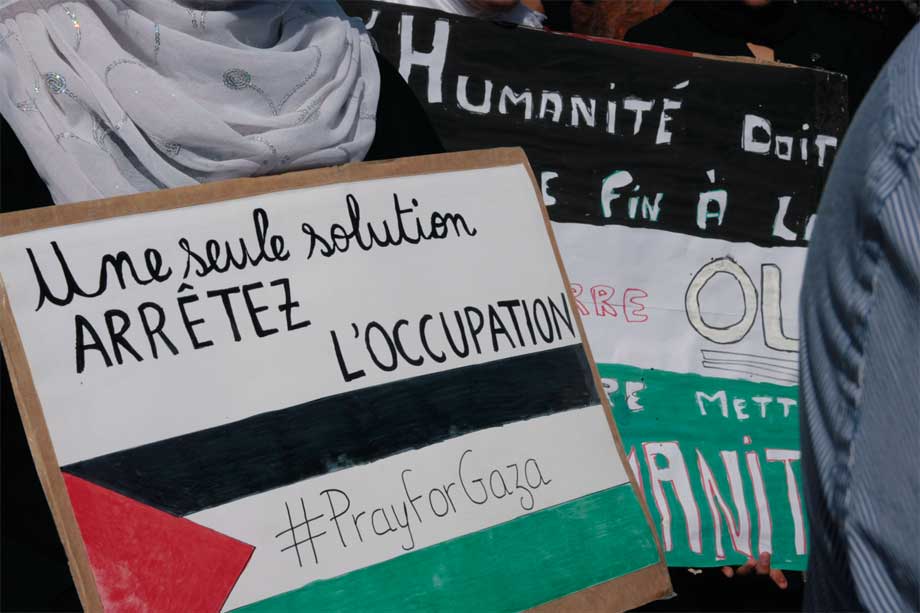 Une seule solution
ARRÊTEZ
L'OCCUPATION
#PrayForGaza
L'HUMANITÉ DOIT
FIN À
OU
METT